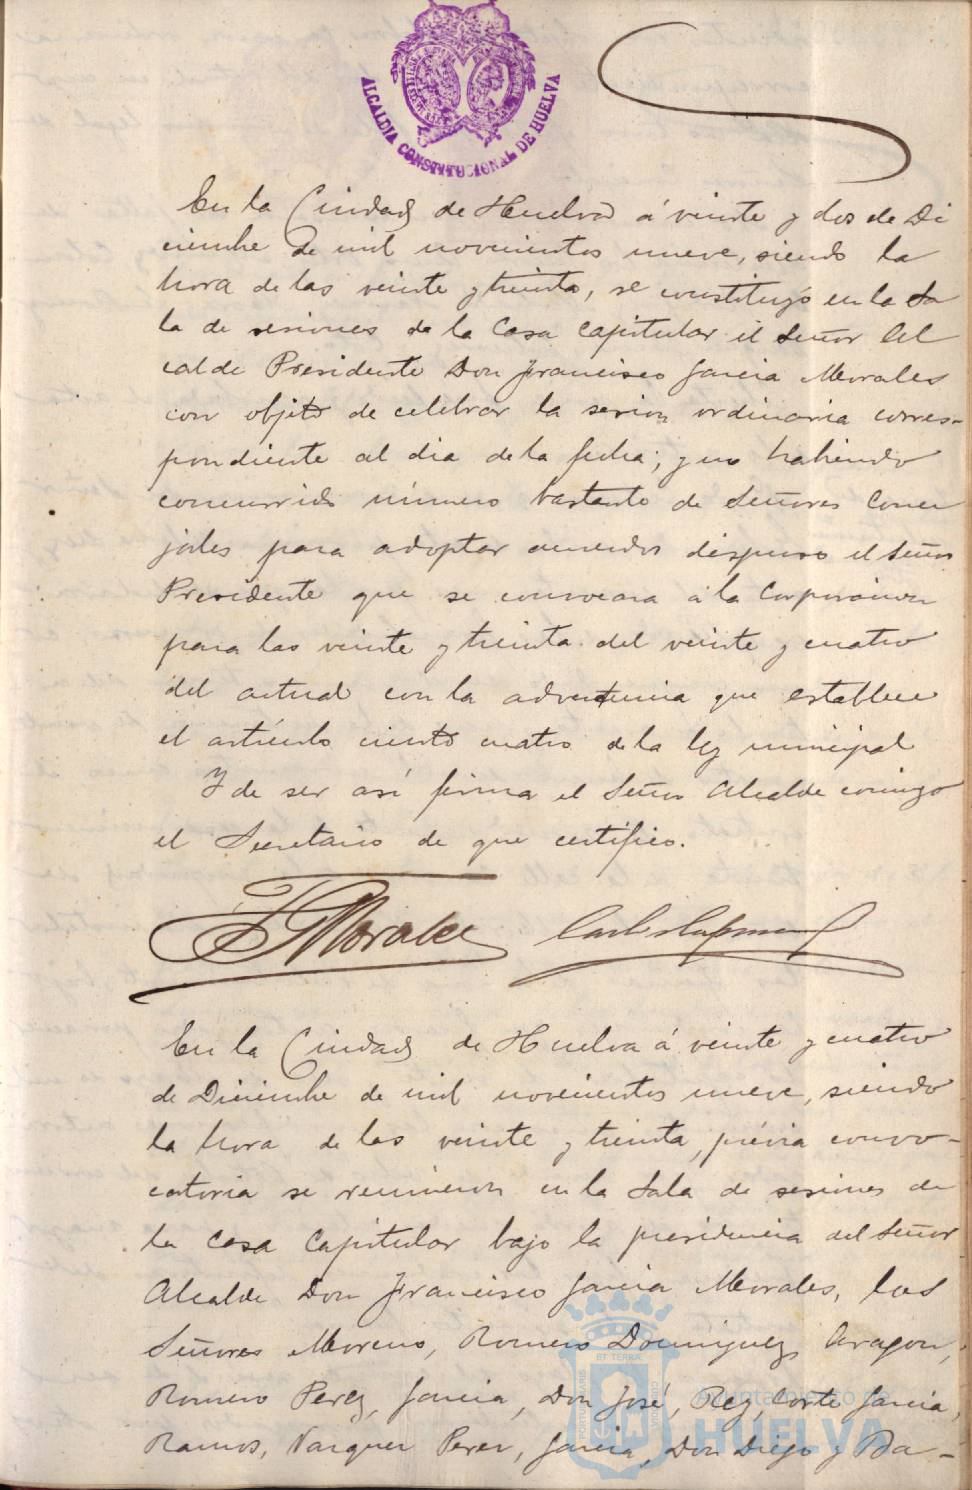 ALCALDIA CONSTITUCIONAL DE HUELVA
En la Ciudad de Huelva á veinte y dos de Di
ciembre de mil novecientos nueve, siendo la
hora de las veinte y treinta, se constituyó en la Sa
la de sesiones de la Casa Capitular el Señor Al
calde Presidente Don Francisco Garcia Morales
con objeto de celebrar la sesion ordinaria corres-
pondiente al dia de la fecha; y no habiendo
concurrido número bastante de Señores Conce
jales para adoptar acuerdos dispuso el Señor
Presidente que se convocara á la Corporacion
para las veinte y treinta del veinte y cuatro
del actual con la advertencia que establece
el artículo ciento cuatro de la ley municipal
Y de ser así firma el Señor Alcalde conmigo
el Secretario de que certifico.
F G Morales
En la Ciudad de Huelva á veinte y cuatro
de Diciembre de mil novecientos nueve, siendo
la hora de las veinte y treinta, prévia convo-
catoria se reunieron en la Sala de sesiones de
la Casa Capitular bajo la presidencia del Señor
Alcalde Don Francisco Garcia Morales, los
Señores Moreno, Romero Dominguez, Aragon,
Romero Perez, Garcia, Don José, Rey, Corte Garcia,
Ramos, Vazquez Perez, Garcia, Don Diego y Ba-
Ayuntamiento de
HUELVA